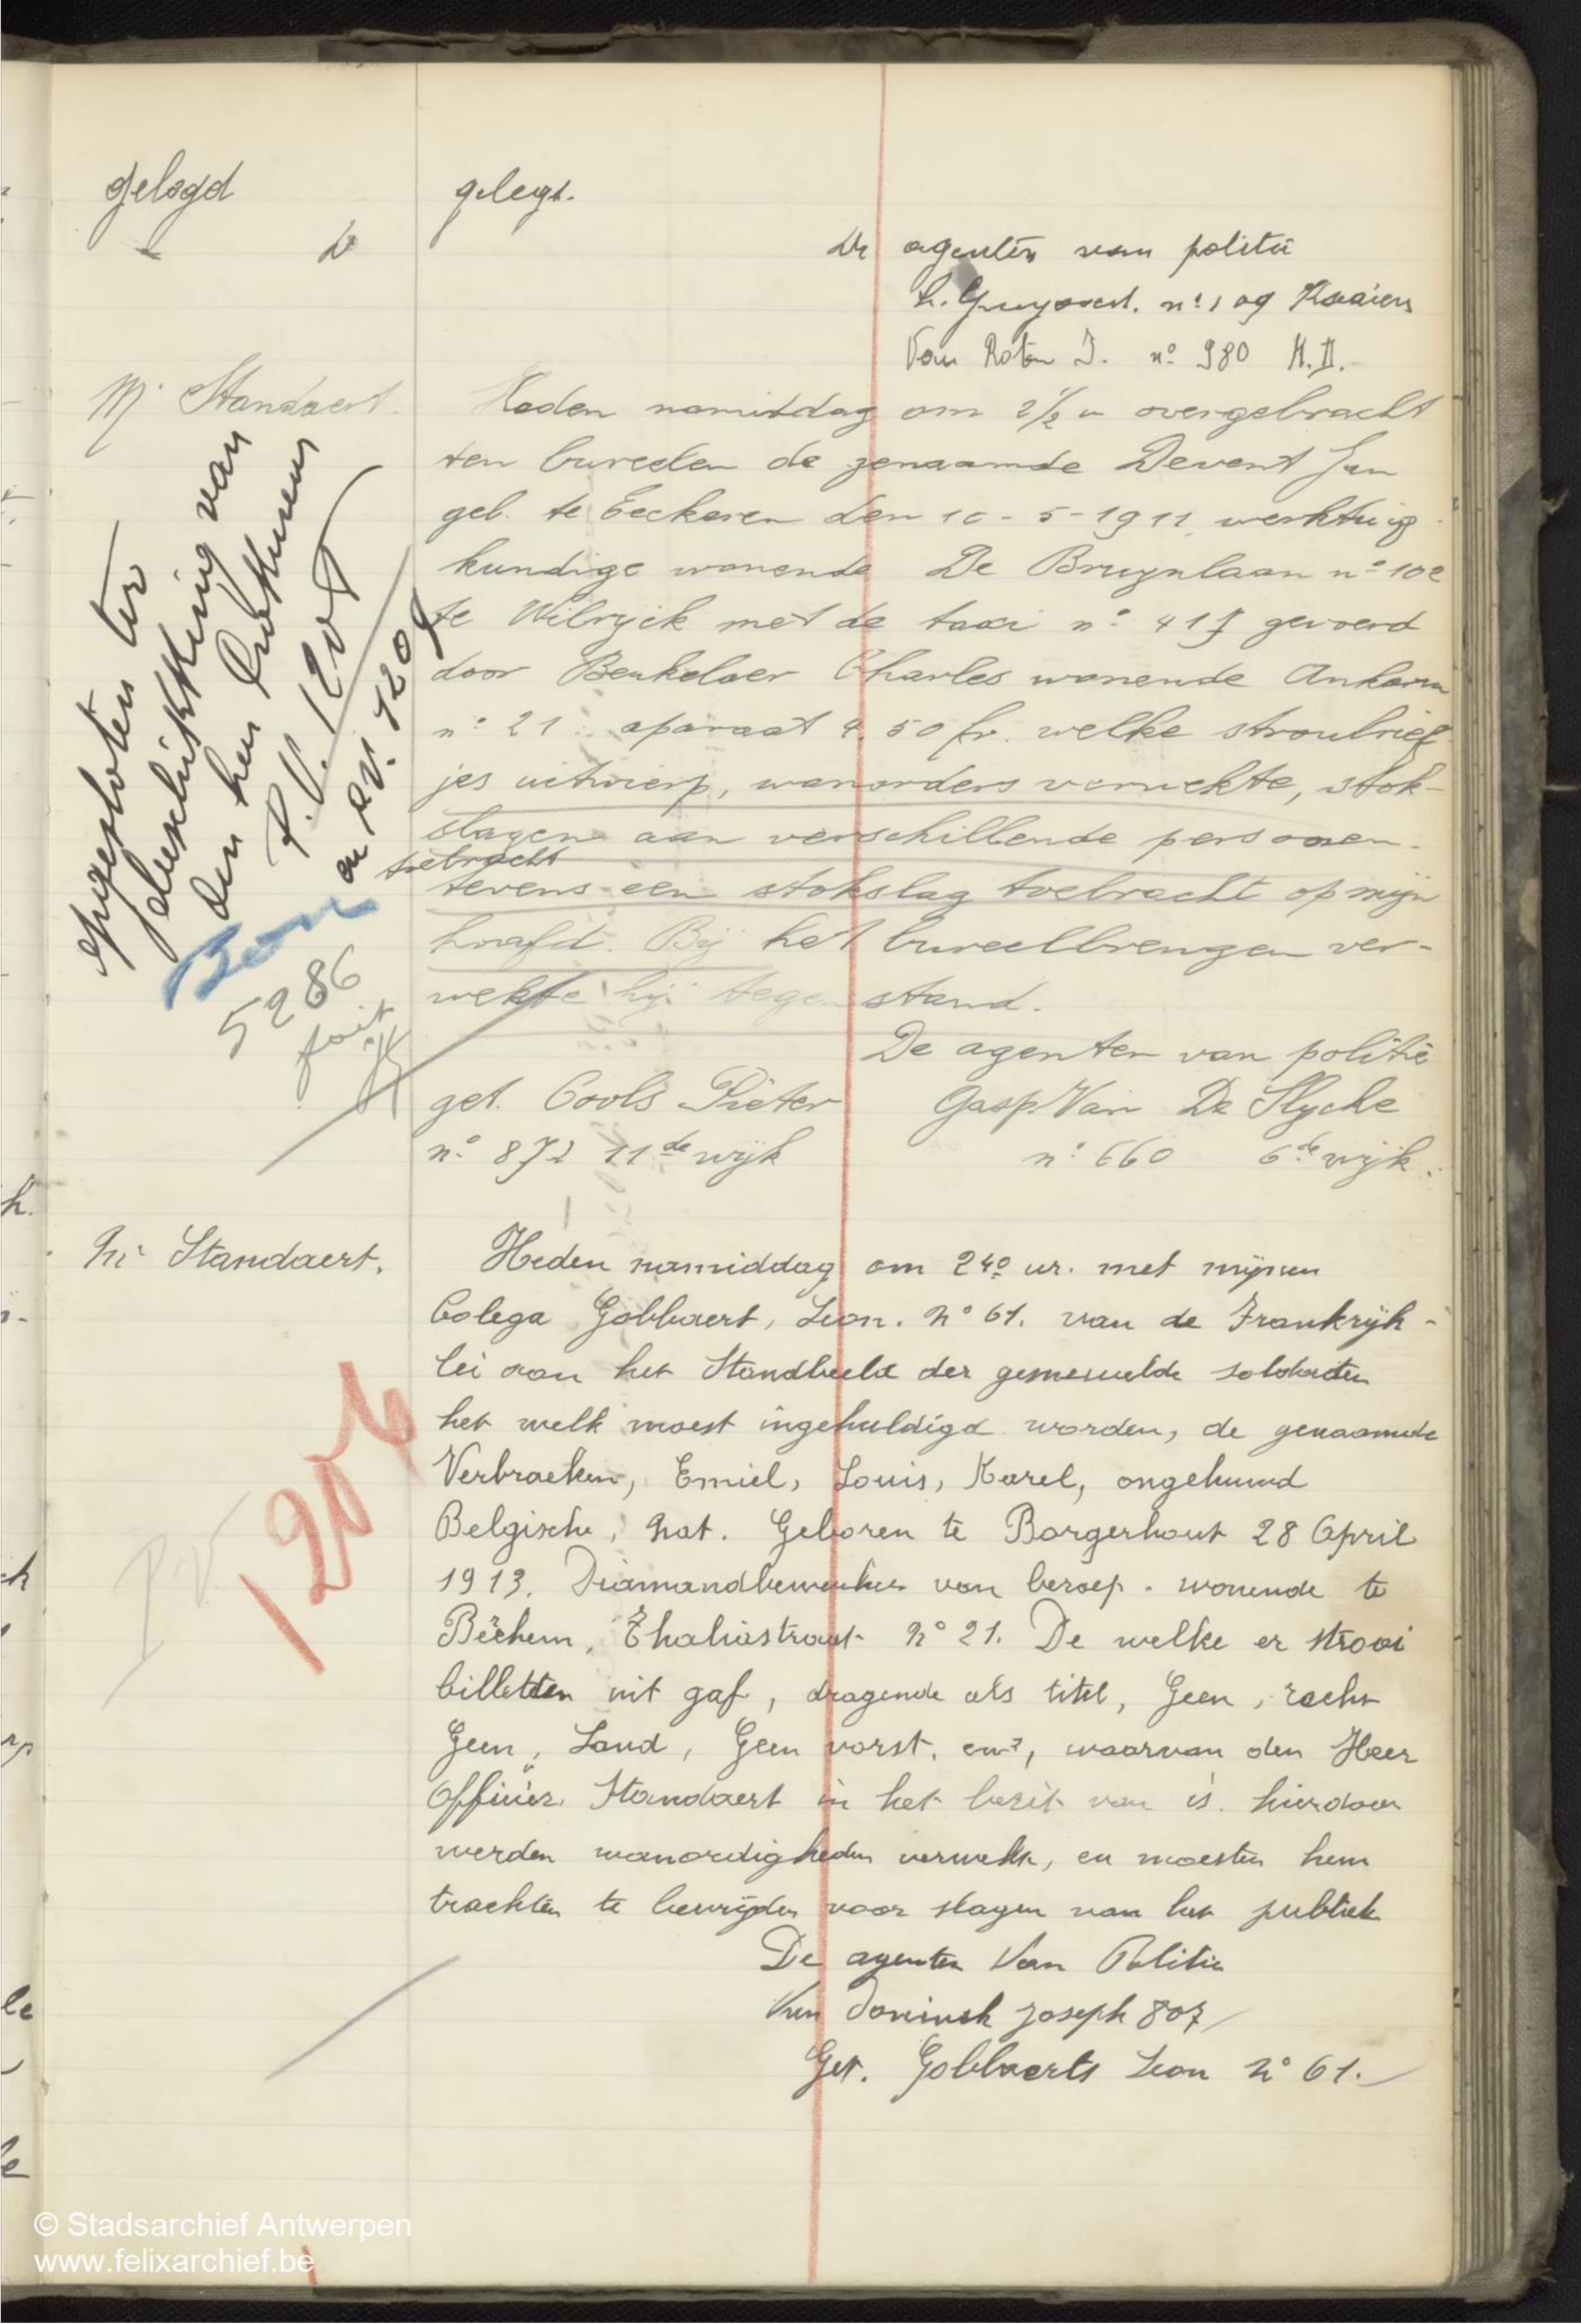 gelogd
gelegt.
De agenten van politie
n: 109
Van Roten J. nº 980 H.II.
Mr Standaert.
Heden namiddag om 2½ u overgebracht
ten bureelen de genaamde Devent Jan
geb. te Eeckeren den 10-5-1911 werktuig
kundige wonende De Bruynlaan nº 102
te Wilryck met de taxi nº 417 gevoerd
door Beukelaer Charles wonende
nº 21: aparaat 4.50 fr. welke stroubrief
jes uitwierp, wanorders verwekte, stok-
slagen aan verschillende personen
toebracht
tevens een stokslag toebracht op mijn
hoofd. Bij het bureelbrengen ver-
wekte hij tegenstand.
De agenten van politie
get. Cools Pieter Gasp. Van De Slycke
nº 872 11de wijk n: 660 6de wijk.
opgesloten ter
beschikking van
den heer
P.V. 1207
en P.V. 1209
5286
fait
Mr Standaert.
Heden namiddag om 2 40 ur. met mijnen
Colega Gobbaert, Leon. Nº 61. van de Frankrijk-
lei aan het Standbeeld der gesneuvelde soldaten
het welk moest ingehuldigd worden, de genaamde
Verbraeken, Emiel, Louis, Karel, ongehuwd
Belgische, Nat. Geboren te Borgerhout 28 April
1913. Diamandbewerker van beroep. wonende te
Berchem, Thaliastraat Nº 21. De welke er strooi
billetten uit gaf, dragende als titel, Geen, recht
Geen, Land, Geen vorst, enz, waarvan den Heer
Officier Standaert in het bezit van is. hierdoor
werden wanordigheden verwekt, en moesten hem
trachten te bevrijden voor slagen van het publiek
P.V.
1206
De agenten Van Politie
Van Joseph 807
Get. Gobbaerts Leon Nº 61.
© Stadsarchief Antwerpen
www.felixarchief.be